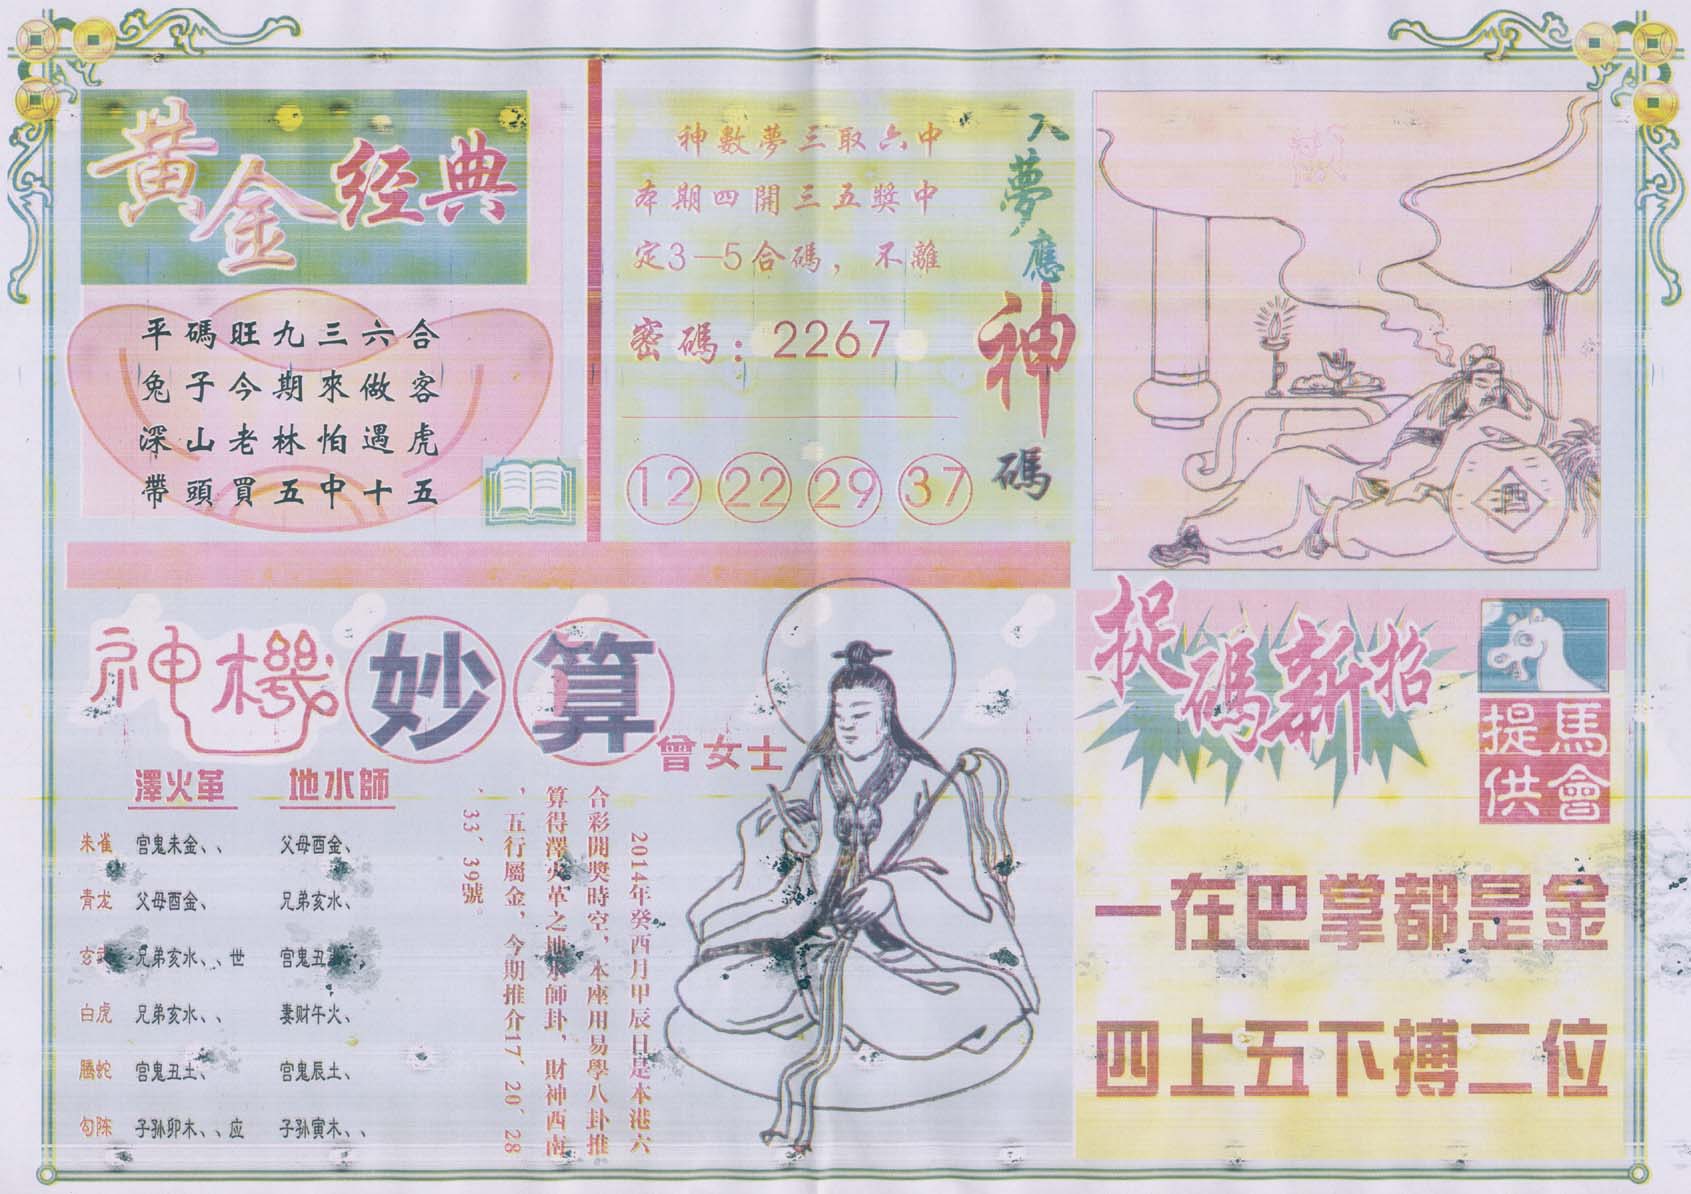 黄金经典
平碼旺九三六合
兔子今期來做客
深山老林怕遇虎
帶頭買五中十五
神數夢三取六中
本期四開三五獎中
定3—5合碼，不離
密碼：2267
12 22 29 37
入夢應神碼
酒
神機妙算
曾女士
澤火革 地水師
朱雀 官鬼未金、、 父母酉金、
青龙 父母酉金、 兄弟亥水、
玄武 兄弟亥水、、世 官鬼丑
白虎 兄弟亥水、、 妻财午火、
騰蛇 官鬼丑土、 官鬼辰土、
勾陈 子孙卯木、、应 子孙寅木、、
2014年癸酉月甲辰日是本港六
合彩開獎時空，本座用易學八卦推
算得澤火革之地水師卦，財神西南
，五行屬金，今期推介17、20、28
、33、39號。
捉碼新招
馬會
提供
一在巴掌都是金
四上五下搏二位